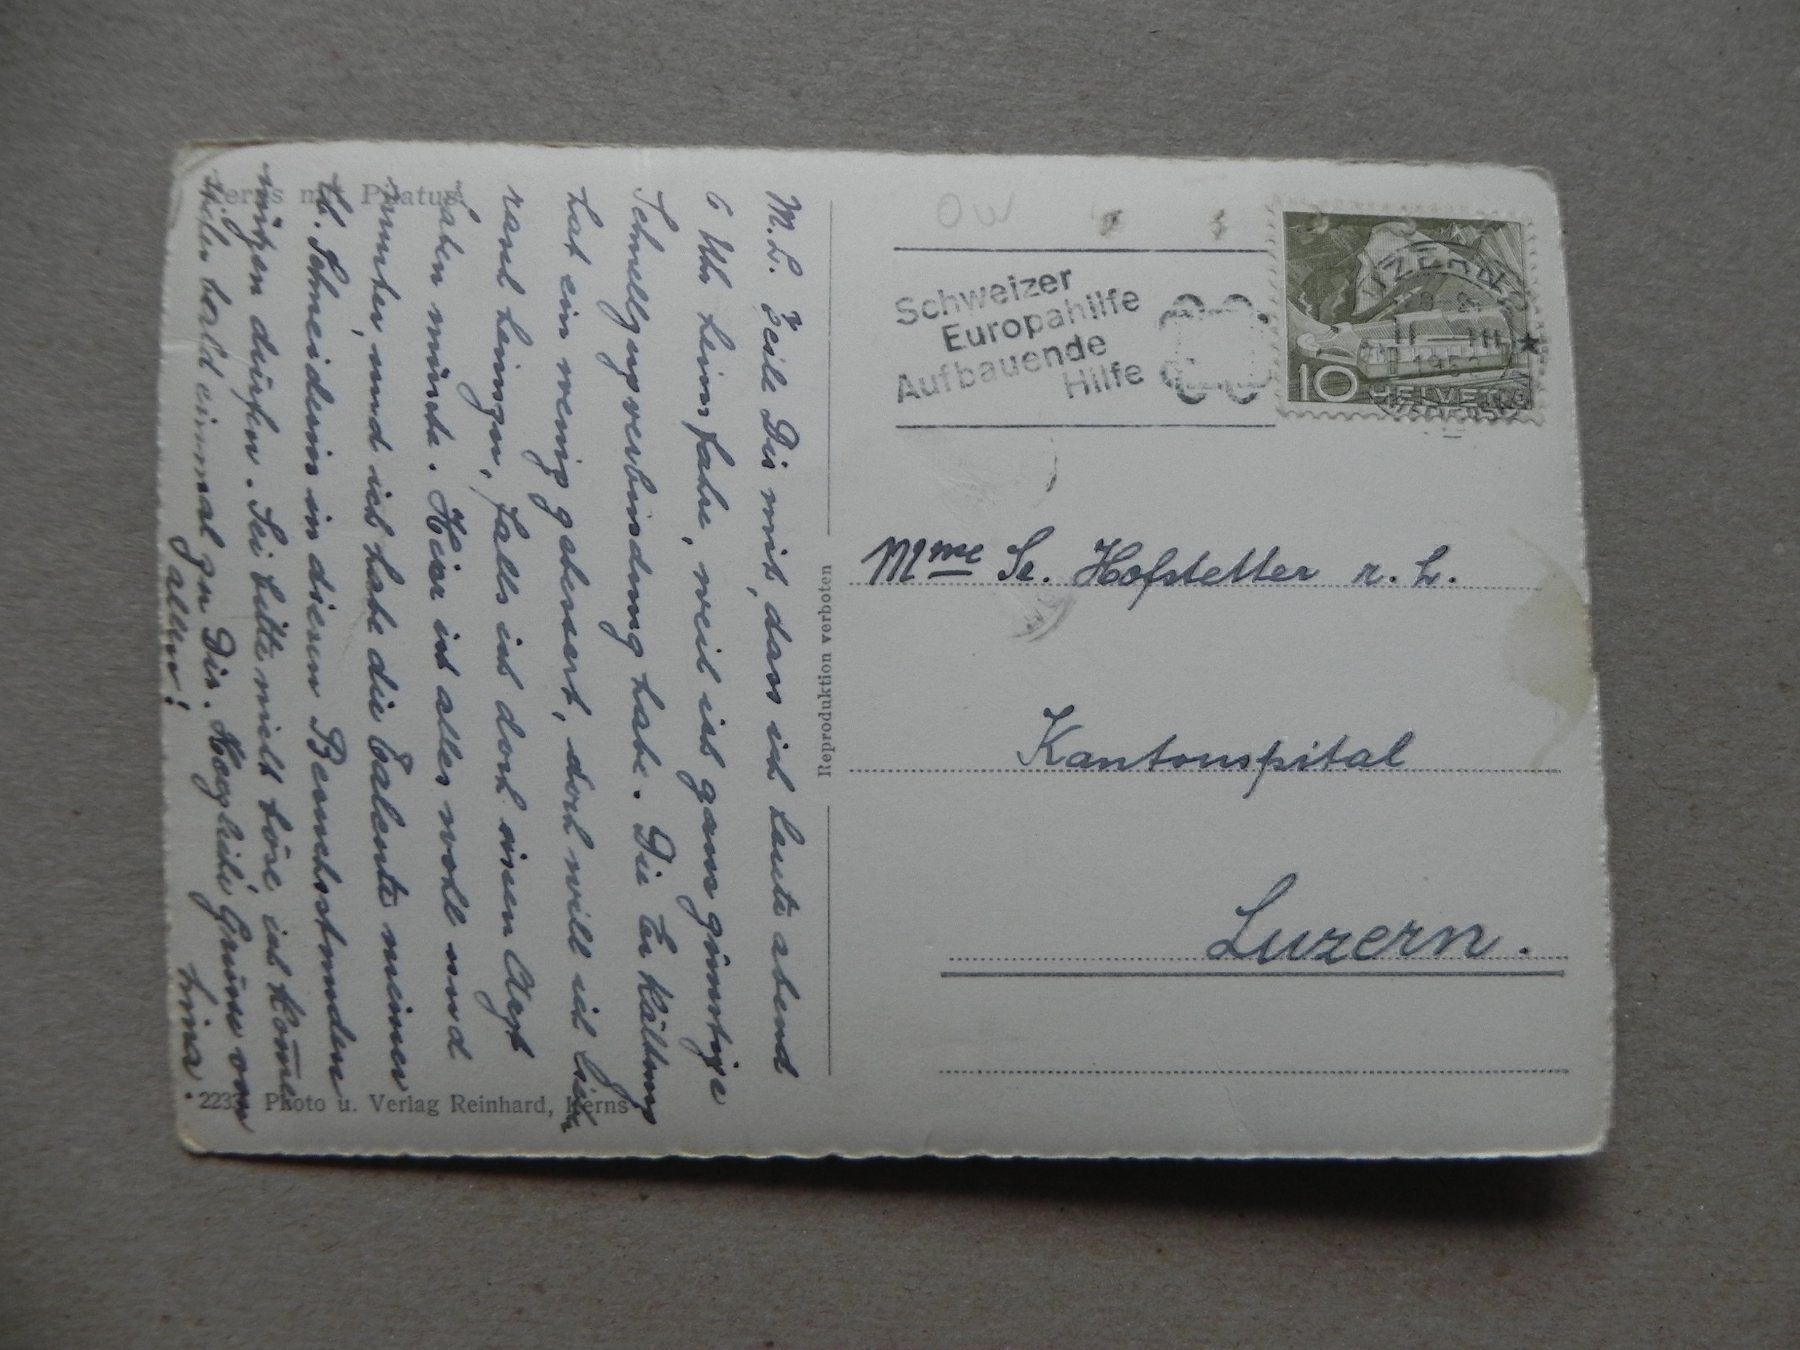 Kerns mit Pilatus
M. L. Teile Dir mit, dass ich heute abend
6 Uhr heimfahre, weil ich ganz günstige
Schnellzugverbindung habe. Die Erkältung
hat ein wenig gebessert, doch will ich lieber
rasch heimgn, falls ich doch einen Arzt
haben müsste. Hier ist alles wohl und
munter, und ich habe die Talente meiner
lb. Schneiderin in diesen Besuchsstunden
nützen dürfen. Sei bitte nicht böse, ich kom̄e
bald einmal zu Dir. Herzliche Grüsse von
allen!
Lina.
2233 Photo u. Verlag Reinhard, Kerns
Reproduktion verboten
Schweizer
Europahilfe
Aufbauende
Hilfe
LUZERN
10 HELVETIA
Mme Sr. Hofstetter
Kantonspital
Luzern.